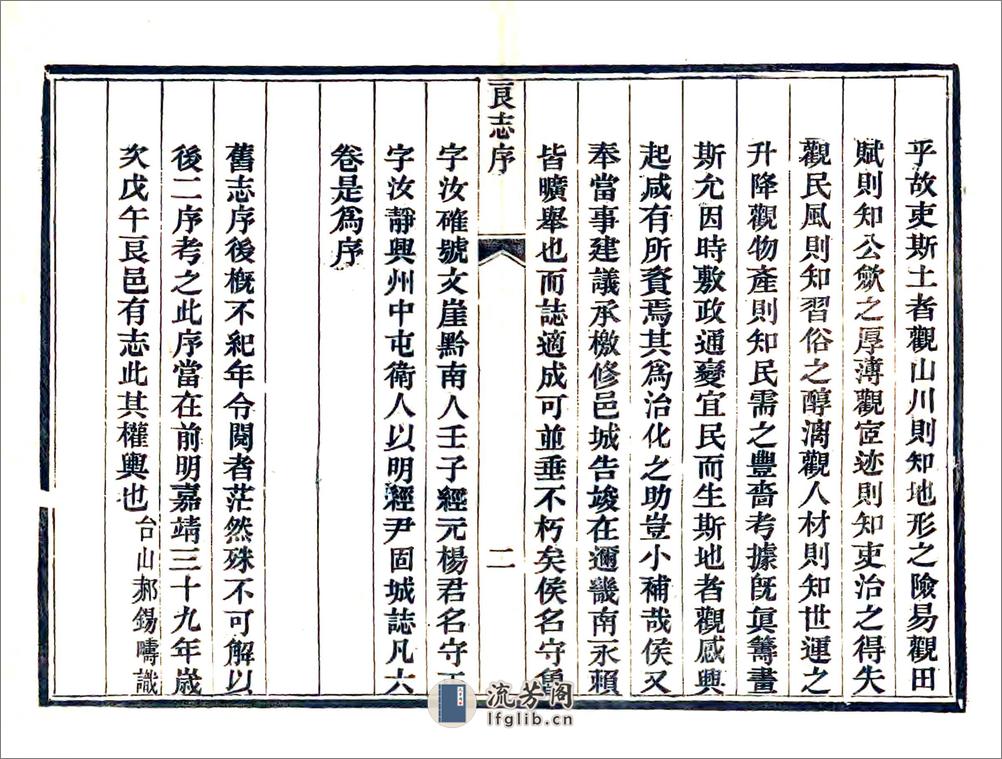 乎故吏斯土者觀山川則知地形之險易觀田
賦則知公歛之厚薄觀宦迹則知吏治之得失
觀民風則知習俗之醇漓觀人材則知世運之
升降觀物產則知民需之豐嗇考據旣眞籌畫
斯允因時敷政通變宜民而生斯地者觀感興
起咸有所資焉其爲治化之助豈小補哉侯又
奉當事建議承檄修邑城告竣在邇畿南永賴
皆曠舉也而誌適成可並垂不朽矣侯名守魯
艮志序
二
字汝確號文崖黔南人壬子經元楊君名守
字汝靜興州中屯衛人以明經尹固城誌凡六
卷是爲序
舊志序後槪不紀年令閱者茫然殊不可解以
後二序考之此序當在前明嘉靖三十九年歲
次戊午艮邑有志此其權輿也
台山郝錫疇識
流芳阁
lfglib.cn